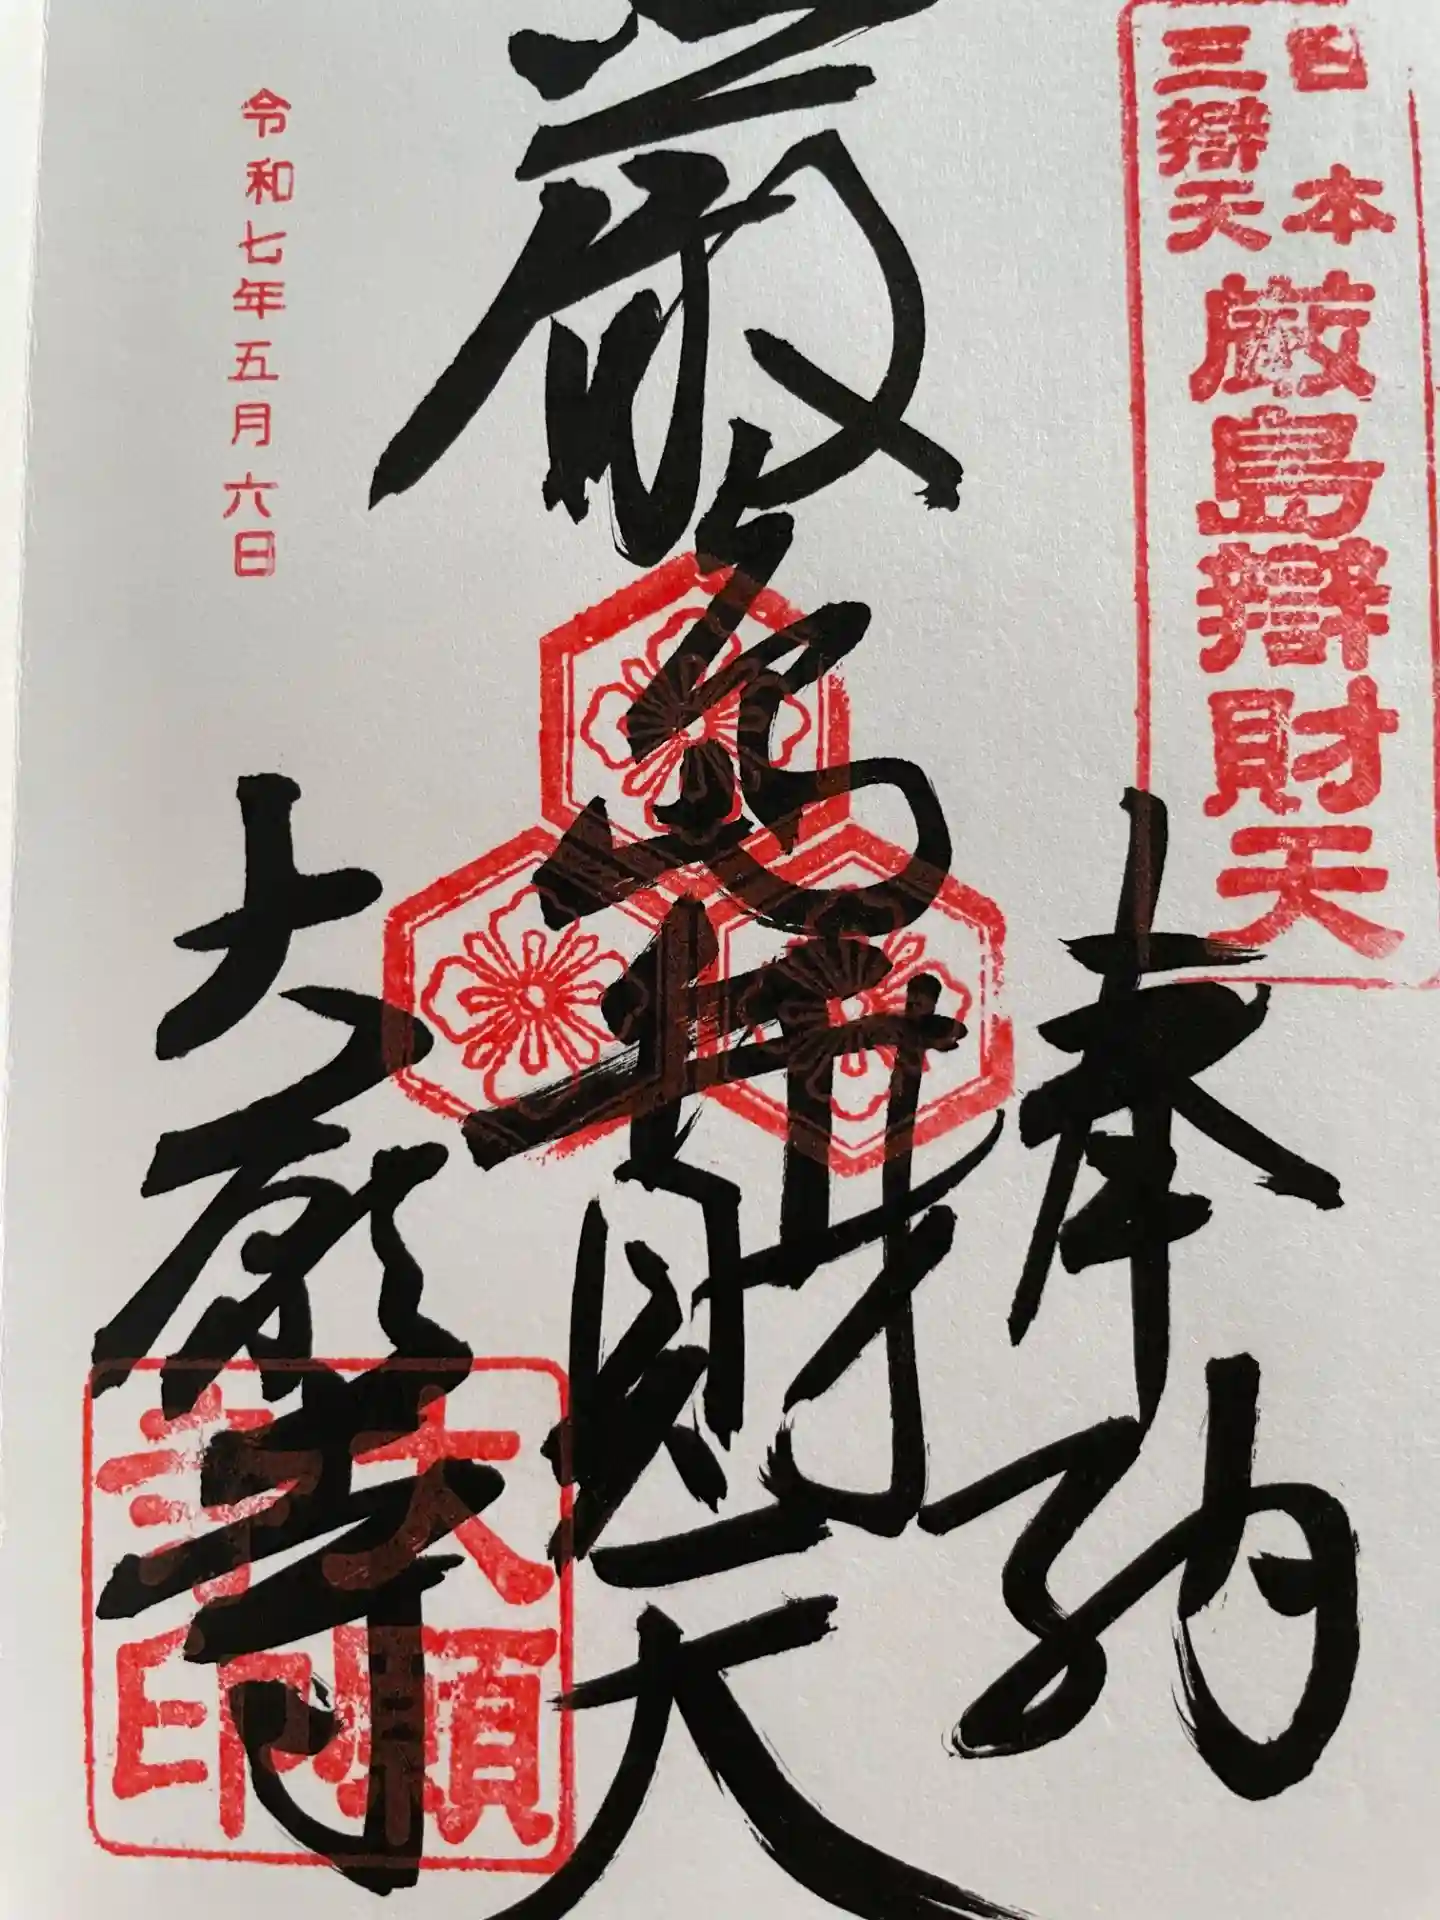 日本
三辯天
厳島辯財天
奉納
厳島弁財天
大願寺
大願
寺印
令和七年五月六日